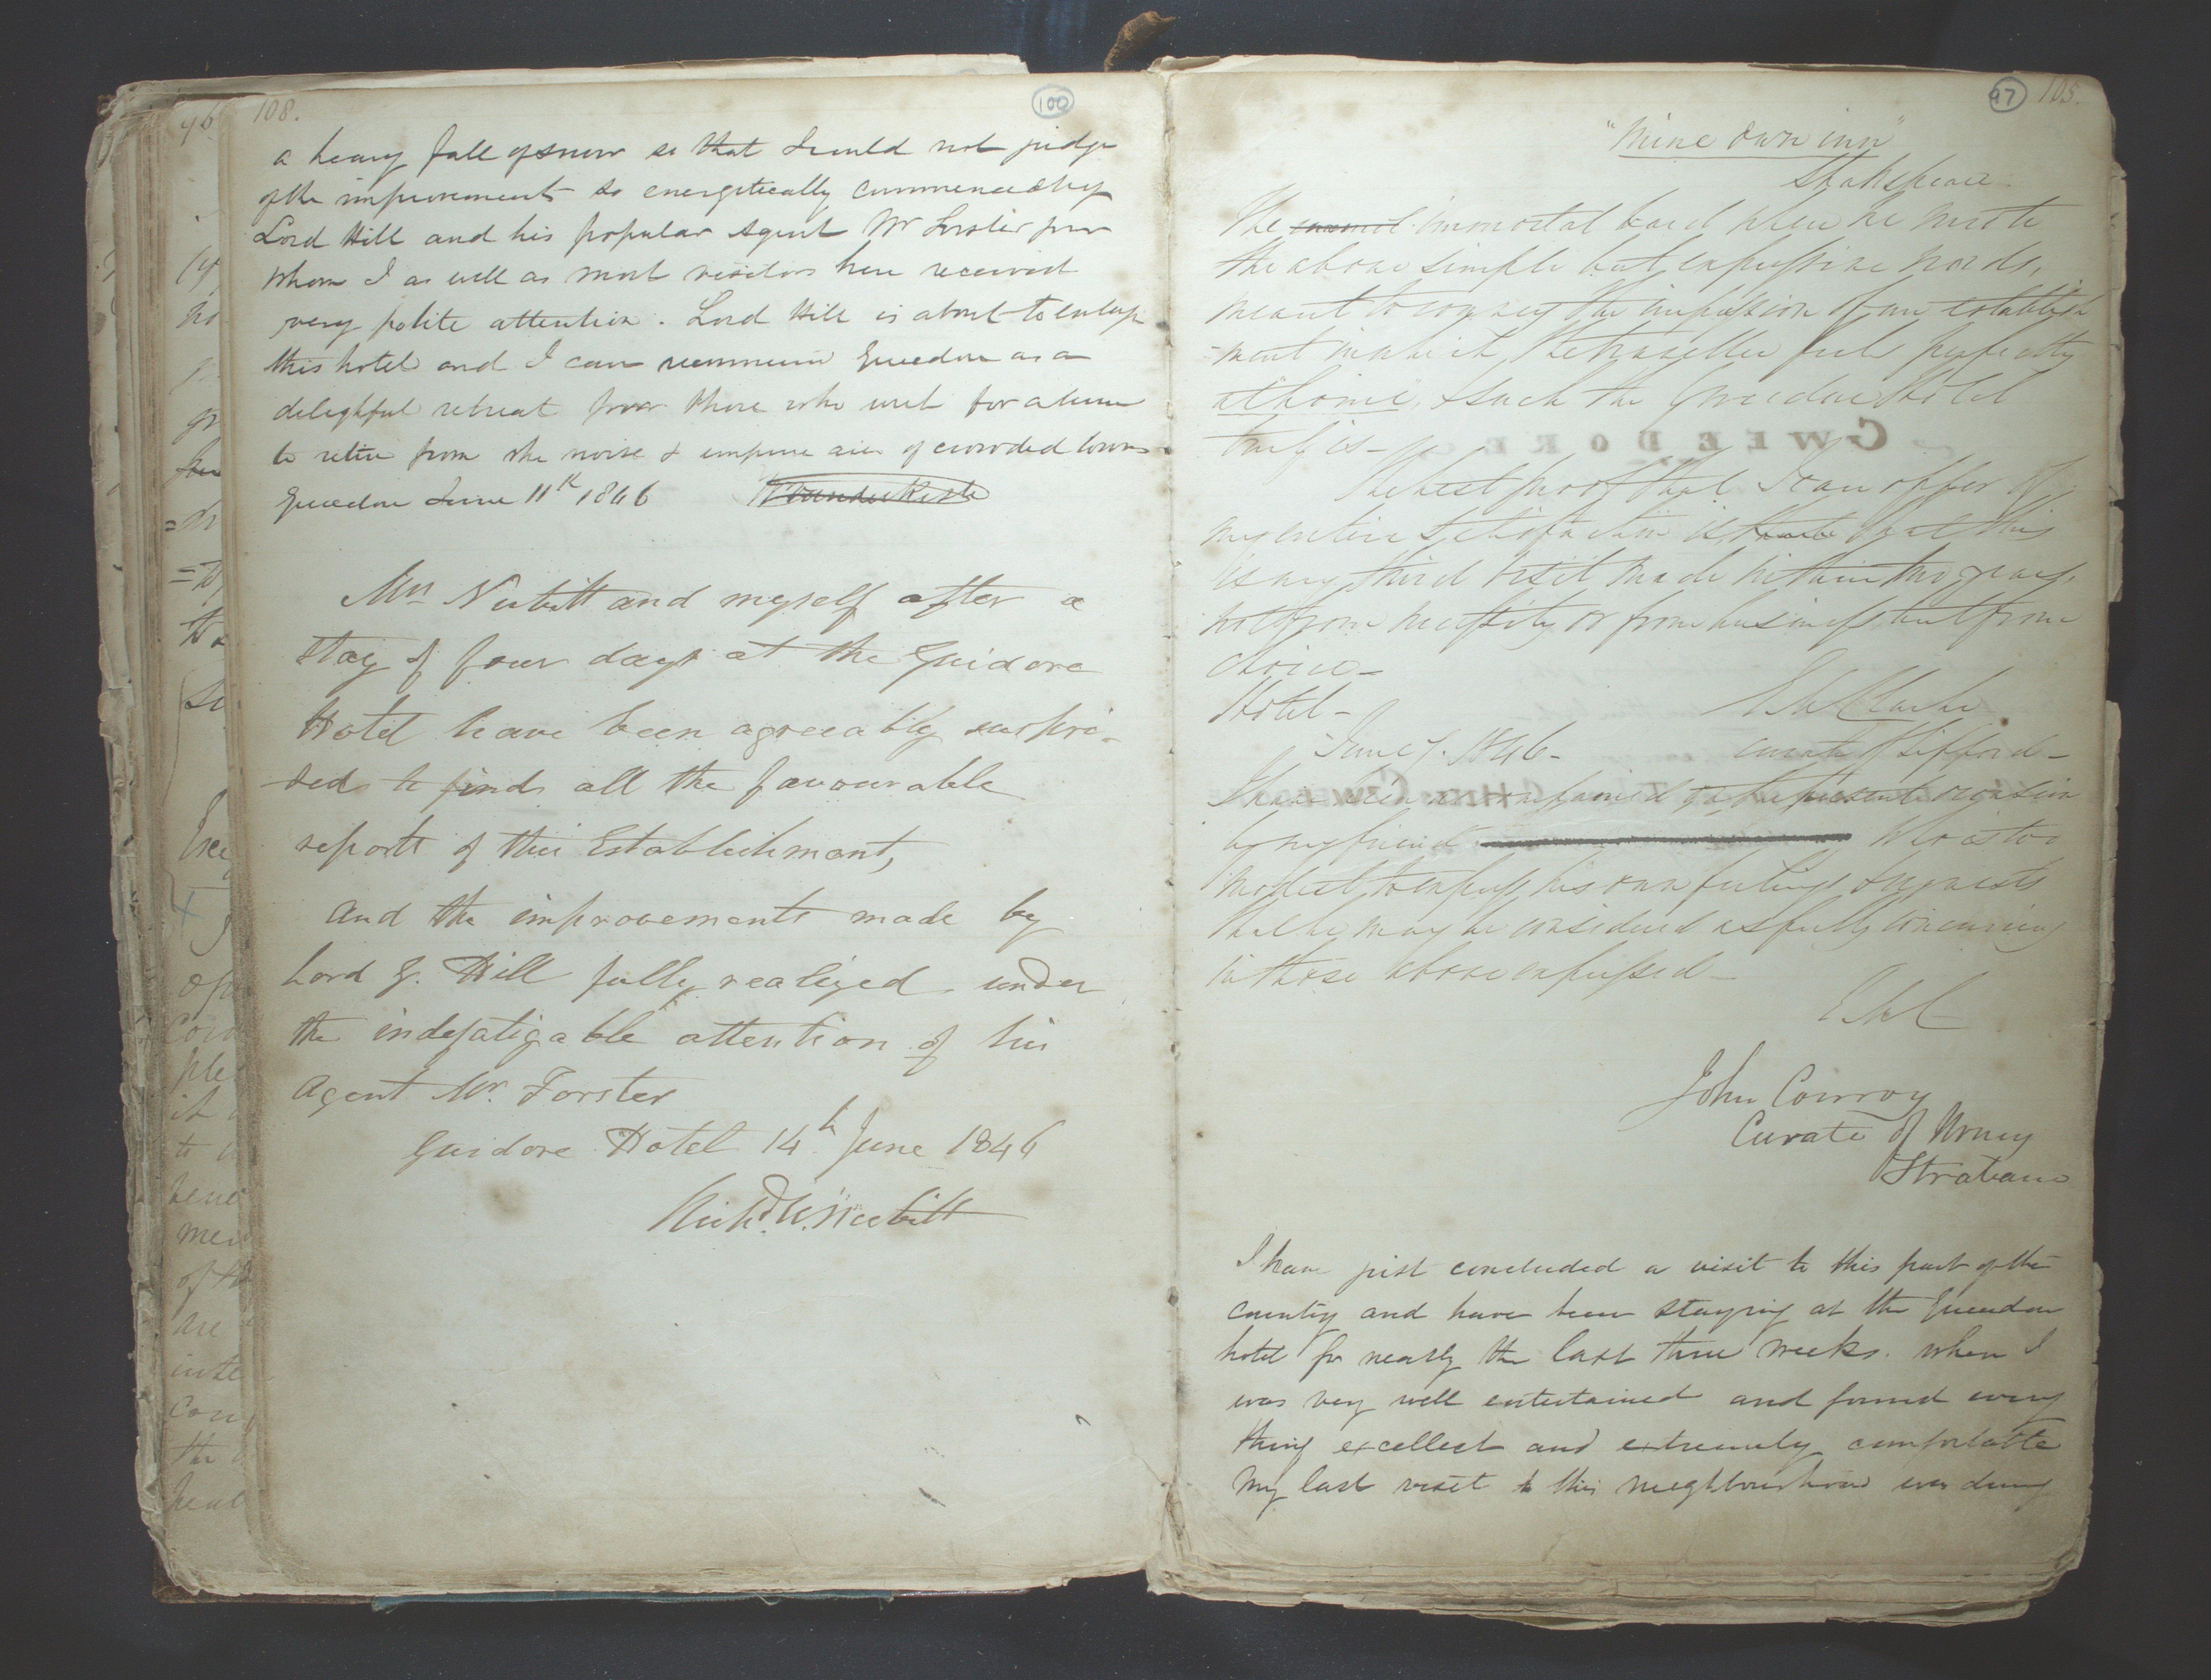 108.
100
a heavy fall of snow so that I could not judge
of the improvements so energetically commenced by
Lord Hill and his popular Agent Mr Forster from
whom I as well as most visitors here received
very polite attention. Lord Hill is about to enlarge
this hotel and I can recommend Gweedore as a
delightful retreat for those who wish for a time
to retire from the noise & impure air of crowded towns
Gweedore June 11th 1846
Mrs Nesbitt and myself after a
stay of four days at the Guidore
Hotel have been agreeably surpri-
-sed to find all the favourable
reports of this Establishment,
And the improvements made by
Lord G. Hill fully realized under
the indefatigable attention of his
Agent Mr. Forster
Guidore Hotel 14th June 1846
Richd. W. Nesbitt
97
105.
"Mine own inn"
Shakspeare.
The immortal bard when he wrote
the above simple but expressive words,
meant to convey the impression of an establish
-ment in which the traveller feels perfectly
at home, & such the Gweedore Hotel
truly is-
GWEEDORE
The best proof that I can offer of
my entire satisfaction is that this
is my third visit made within two years
not from necessity or from business but from
choice-
Hotel-
June 7. 1846-
curate of Lifford-
I have been accompanied on the present occasion
by my friend who is too
modest to express his own feelings & requests
that he may be considered as fully concurring
in those above expressed-
John Conroy
Curate of Urney
Strabane
I have just concluded a visit to this part of the
country and have been staying at the Gweedore
hotel for nearly the last three weeks. when I
was very well entertained and found every
thing excellent and extremely comfortable
My last visit to this neighbourhood was during